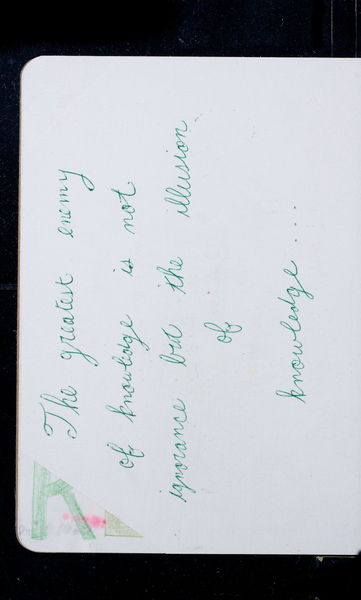 The greatest enemy
of knowledge is not
ignorance but the illusion
of
knowledge....